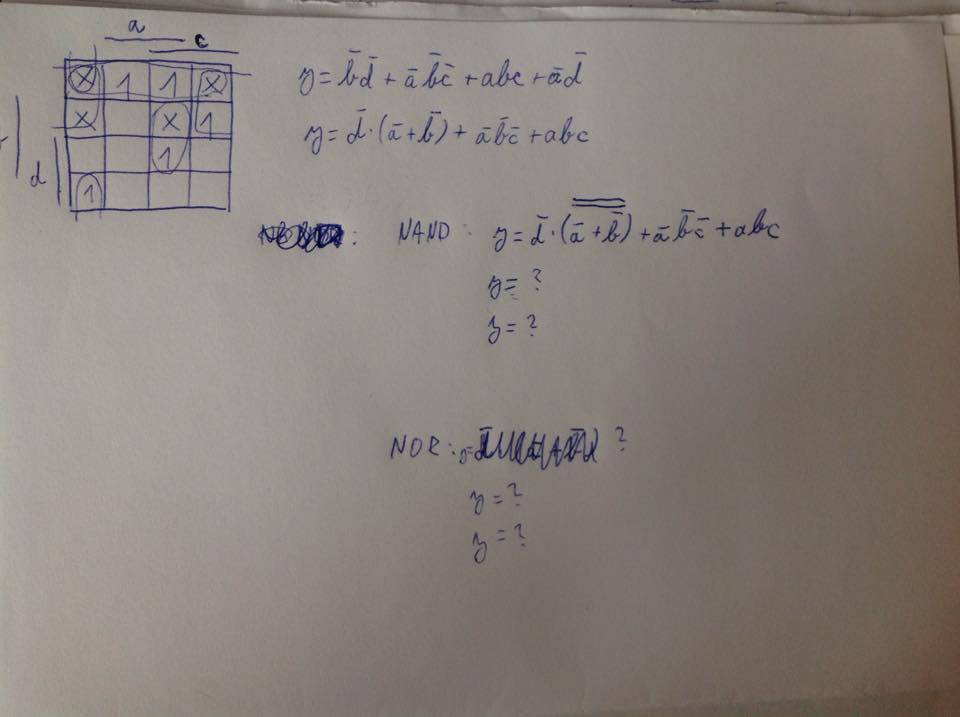 a
c
x 1 1 x
x x 1
1
d
1
y = b̄d̄ + āb̄c̄ + abc + ād̄
y = d̄·(ā+b̄) + āb̄c̄ + abc
NAND: y = d̄·(ā+b̄) + āb̄c̄ + abc
y = ?
y = ?
NOR: ?
y = ?
y = ?